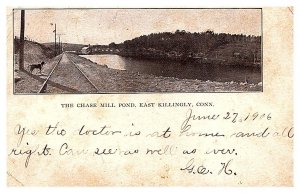 THE CHASE MILL POND, EAST KILLINGLY, CONN.
June 27, 1906
Yes the doctor is at home and all
right. Can see as well as ever.
G.A.H.